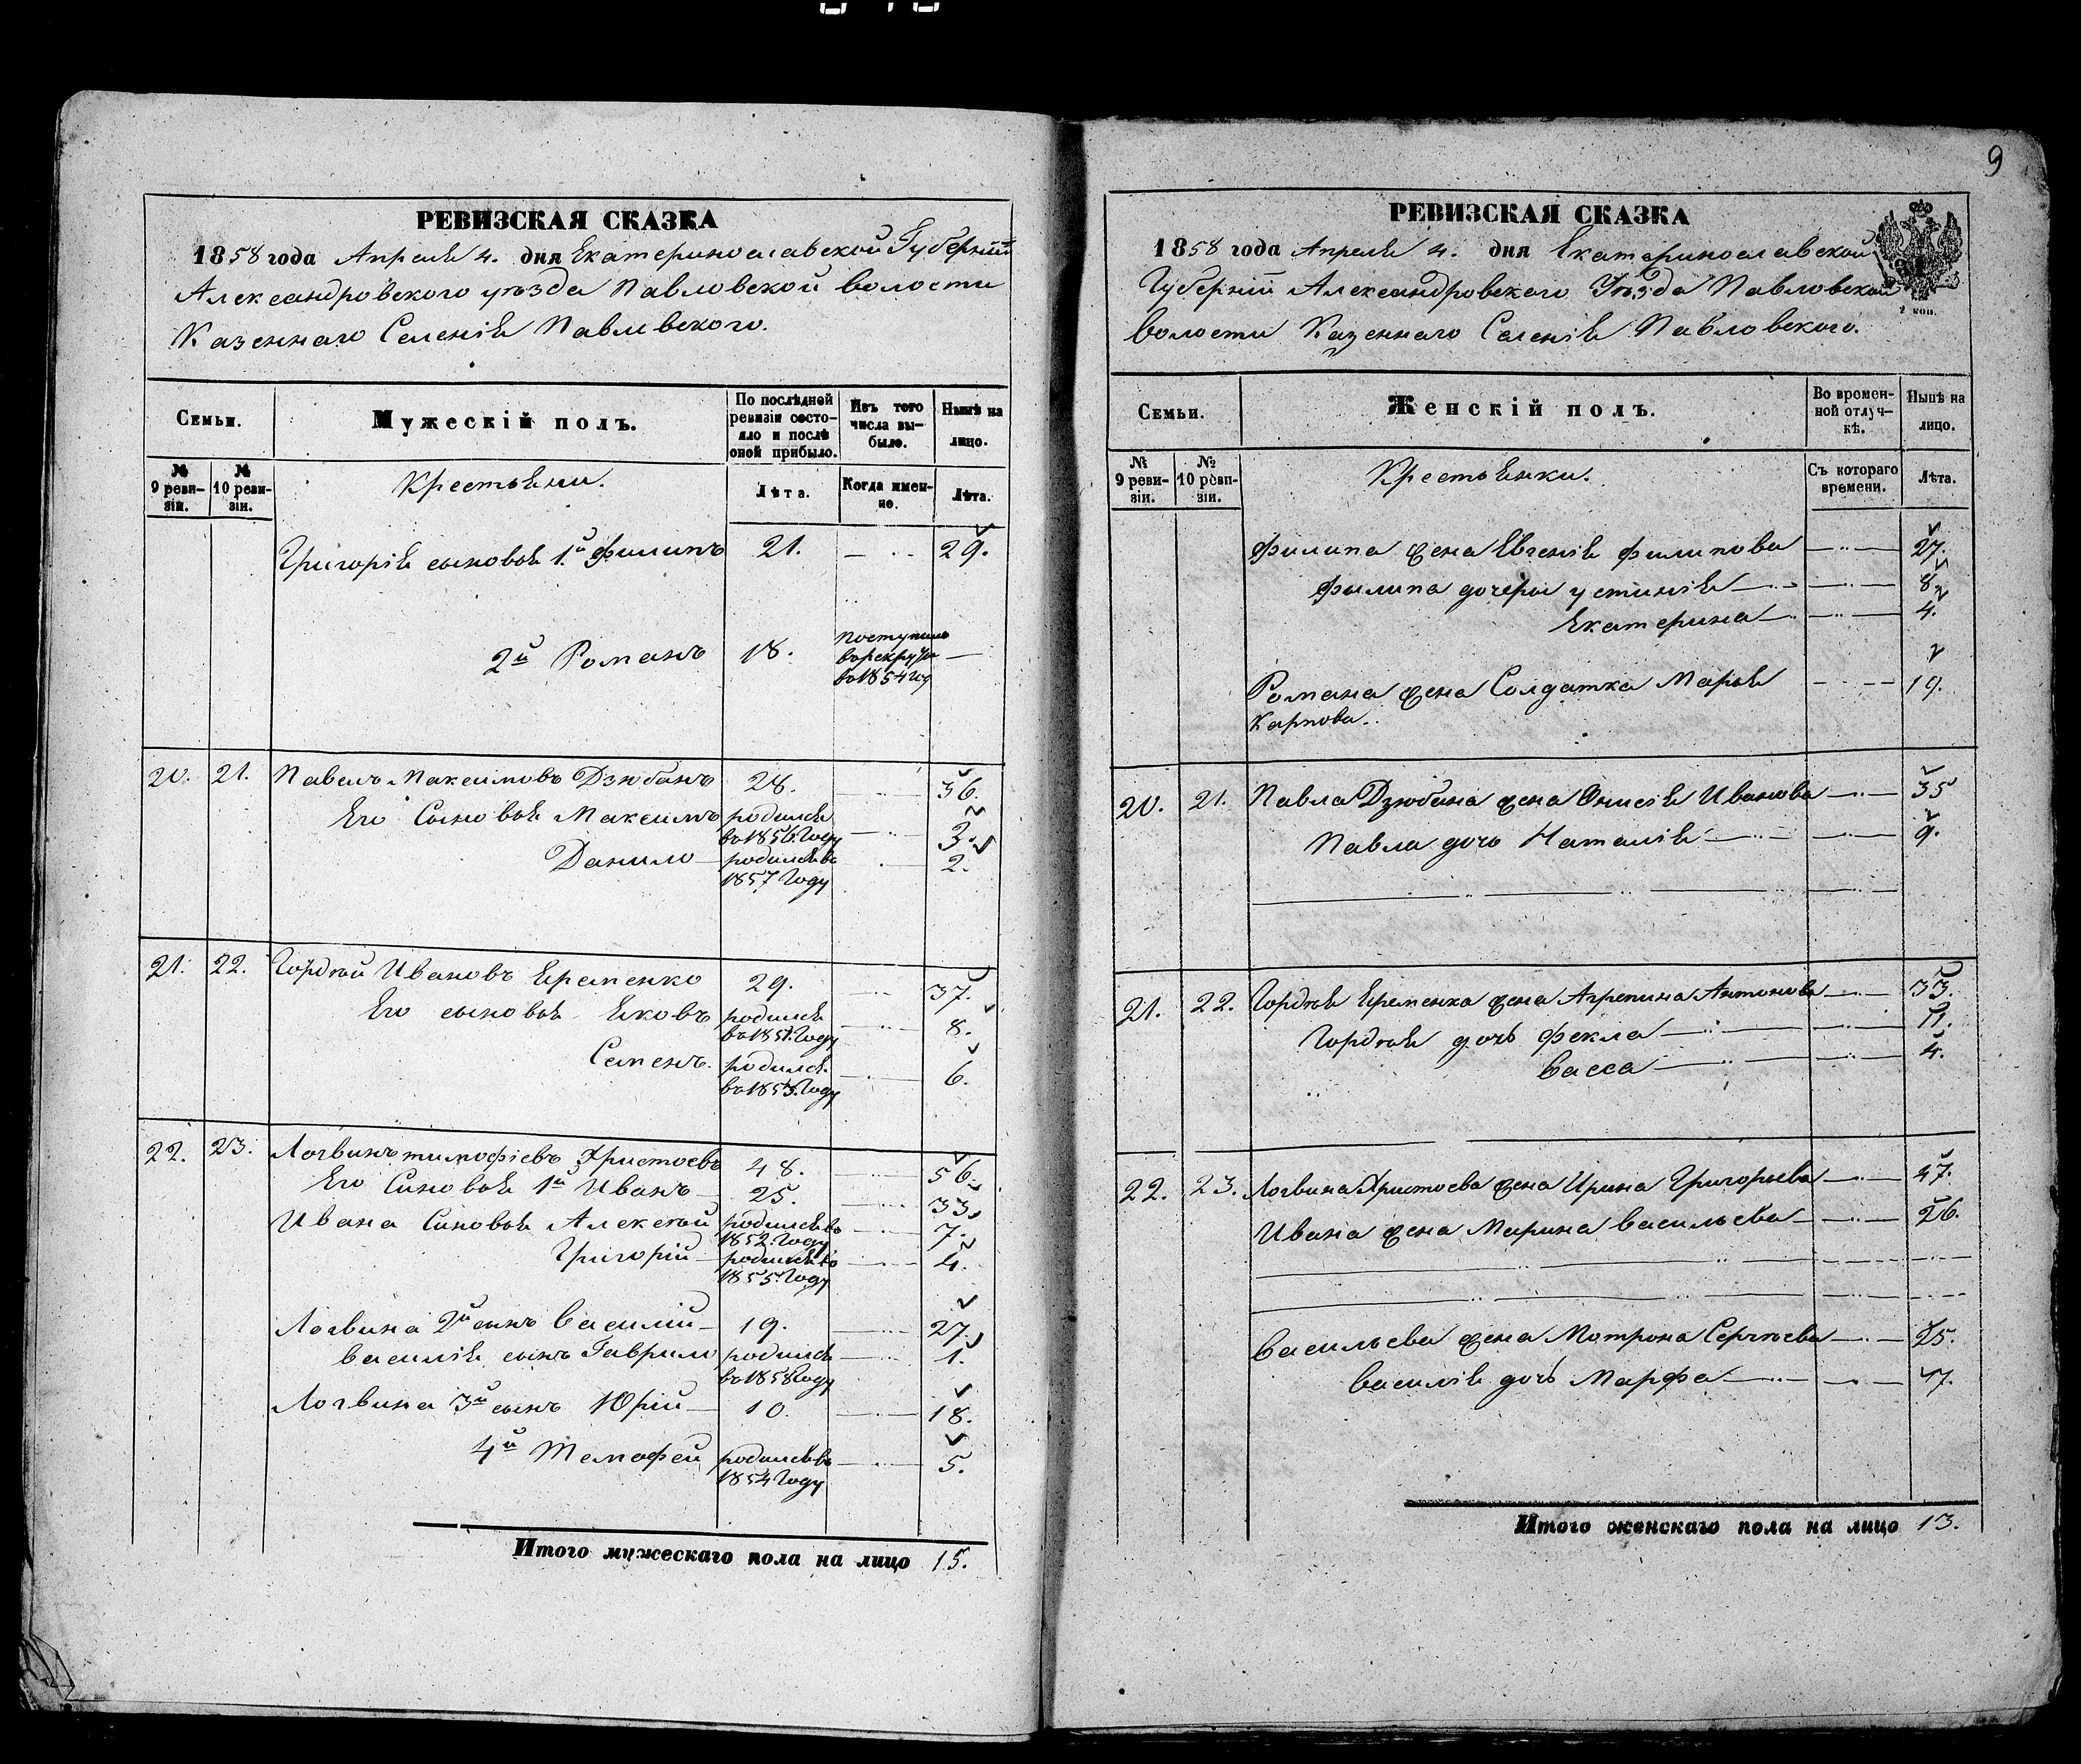 9
РЕВИЗСКАЯ СКАЗКА
1858 года Апреля 4. дня Екатеринославской Губерніи
Александровского уѣзда Павловской волости
Казеннаго Селенія Павловского.
Семьи.
Мужескій полъ.
По послѣдней ревизіи состояло и послѣ оной прибыло.
Изъ того числа выбыло.
Нынѣ на лицо.
№ 9 ревизіи.
№ 10 ревизіи.
Крестьяни.
Лѣта.
Когда именно.
Лѣта.
Григорія сыновья 1й Филипъ 21. 29.
2й Романъ 18. поступилъ в рекруты в 1854 году
20. 21. Павелъ Максимовъ Дзюбанъ 28. 36.
Его Сыновья Максимъ родился въ 1856 Году 3.
Данило родился въ 1857 Году 2.
21. 22. Гордѣй Ивановъ Еременко 29. 37.
Его сыновья Яковъ родился въ 1851 Году 8.
Семенъ. родился въ 1853. Году 6.
22. 23. Логвинъ тимофѣевъ Христоевъ 48. 56.
Его Синовья 1й Иванъ 25. 33.
Ивана Синовья Алексѣй родился въ 1852 Году 7.
Григорій родился въ 1855 Году 4.
Логвина 2й сынъ Василій 19. 27.
Василія сынъ Гаврило родился въ 1858 Году 1.
Логвина 3й сынъ Юрій 10. 18.
4й Темофей родился въ 1854 Году 5.
Итого мужескаго пола на лицо 15.
РЕВИЗСКАЯ СКАЗКА
1858 года Апреля 4. дня Екатеринославской
Губерніи Александровского Уѣзда Павловской
волости Казеннаго Селенія Павловского.
Семьи.
Женскій полъ.
Во временной отлучкѣ.
Нынѣ на лицо.
№ 9 ревизіи.
№ 10 ревизіи.
Крестьянки.
Съ котораго времени.
Лѣта.
Филипа жена Евгенія Филипова 27.
Филипа дочери устинія 8
Екатерина 4.
Романа жена Солдатка Марья 19.
Карпова.
20. 21. Павла Дзюбана жена Онисія Иванова 35
Павла дочь Наталія 9.
21. 22. Гордѣя Еременка жена Агрепина Антонова 33.
Гордѣя дочь Фекла 11.
Васса 4.
22. 23. Логвина Христоева жена Ирина Григорьева 47.
Ивана жена Марина Васильева 26.
Васильева жена Мотрона Сергѣева 25.
Василія дочь Марфа
Итого женскаго пола на лицо 13.